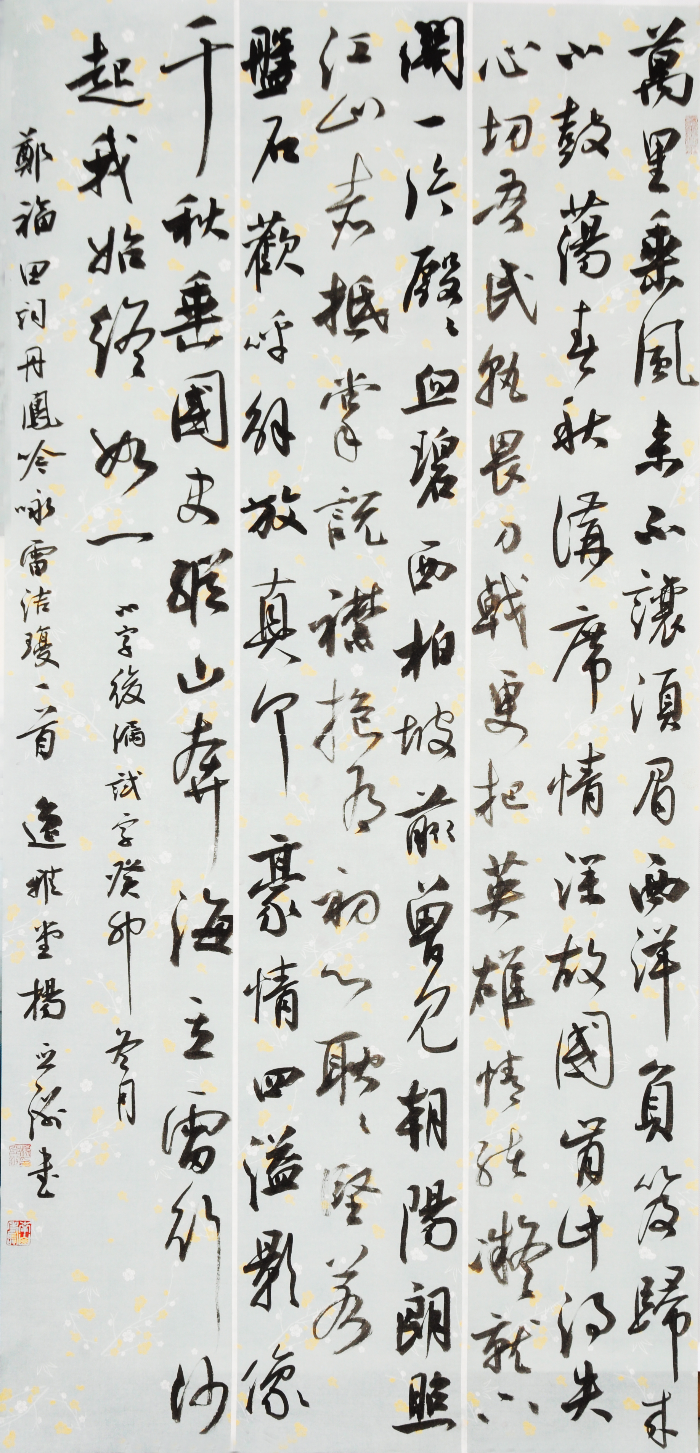 萬里乘風去不讓須眉西洋負笈歸來
小鼓蕩春秋講席情深故國肯計得失
心切吾民孰畏刀戟更把英雄情結凝就
瀾一片殷殷血碧西柏坡前曾見朝陽朗照
江山赤抵掌說襟抱為初心耿耿堅若
盤石歡呼解放真个豪情四溢影像
千秋垂國史縱山奔海立雷行沙
起我始終如一
小字後漏試字癸卯冬月
鄭福田詞丹鳳吟咏雷洁瓊一首 逸雅堂楊書